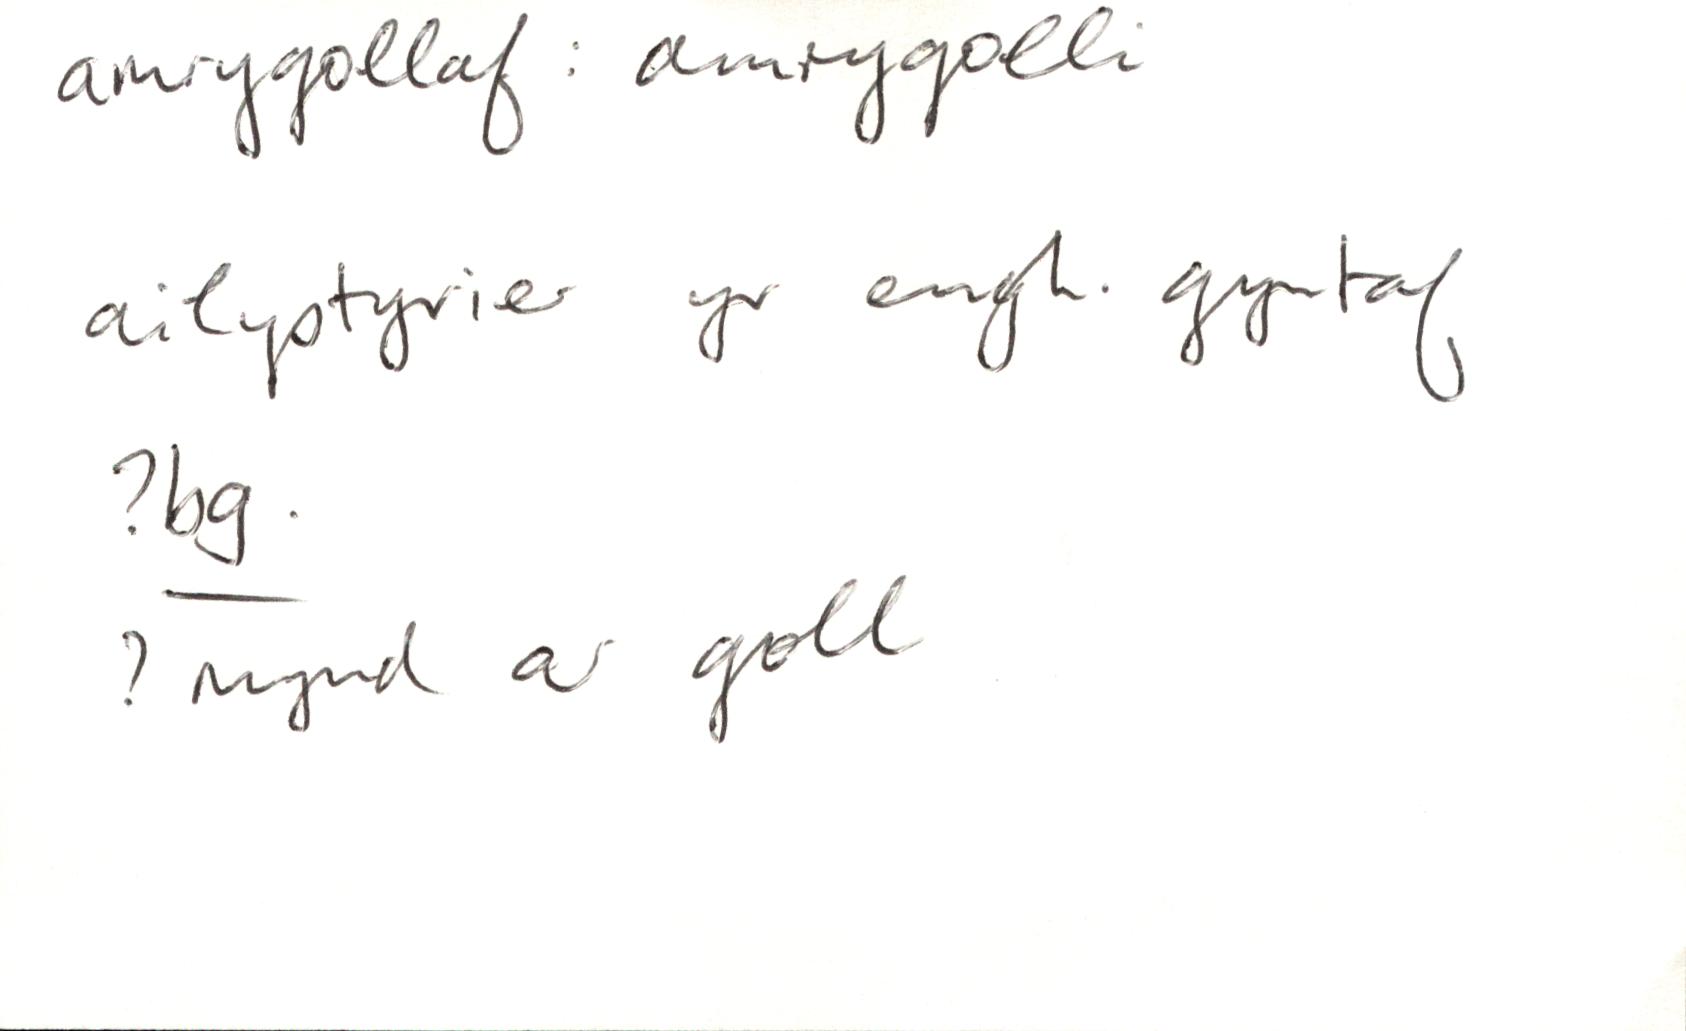 amrygollaf : amrygolli
ailystyrier yr engh. gyntaf
?bg.
? mynd ar goll